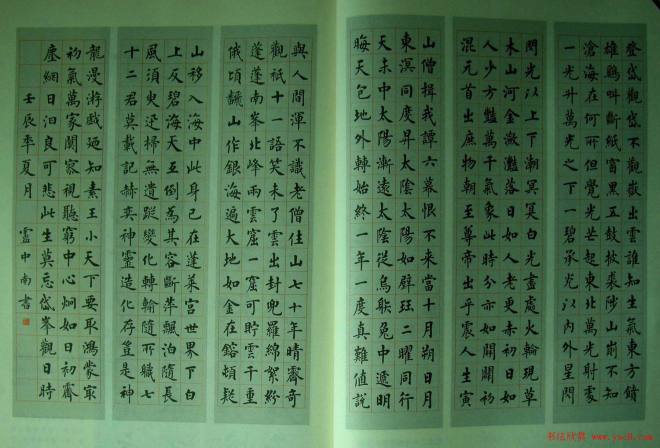 登岱觀岱不觀嶽出雲誰知生氣東方
雄鷄叫斷紙窗黑五鼓披裘陟山崩不知
滄海在何所但覺光芒起東北萬光射處
一光升萬光之下一碧承光以內外星閃
閃光以上下潮冥冥白光盡處火輪現草
木山河金激灩落日如人老更赤初日如
人少方豔萬千氣象此時分亦如開闢初
混元首出庶物朝至尊帝出乎震人生寅
山僧揖我譚六幕恨不來當十月朔日月
東溟同度昇太陰太陽如璧珏二曜同行
天未中太陽漸遠太陰從烏躲兔中遞明
晦天包地外轉始終一年一度真難值說
與人間渾不識老僧住山七十年晴霽奇
觀祇十一語笑未了雲出封兜羅綿絮紛
蓬蓬南峯北峰兩雲窟一窟可貯雲千重
俄頃讑山作銀海遍大地如金在鎔頓疑
山移入海中此身已在蓬萊宮世界下白
上反碧海天互倒爲其容斷萍飄泊隨長
風須臾迅掃無遺蹤變化轉輸隨所職七
十二君莫載記赫奕神靈造化存豈是神
龍漫游戲廼知素王小天下要取鴻蒙最
初氣萬家闤窓視聽窮中心炯如日初霽
塵網日汩良可悲此生莫忘岱峯觀日時
壬辰年夏月 雲中南書
书法欣赏 www.yac8.com